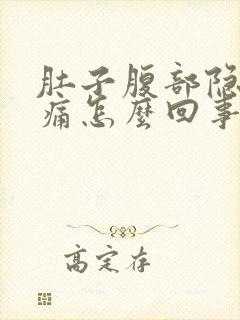 肚子腹部隐
痛怎麽回事
高定存